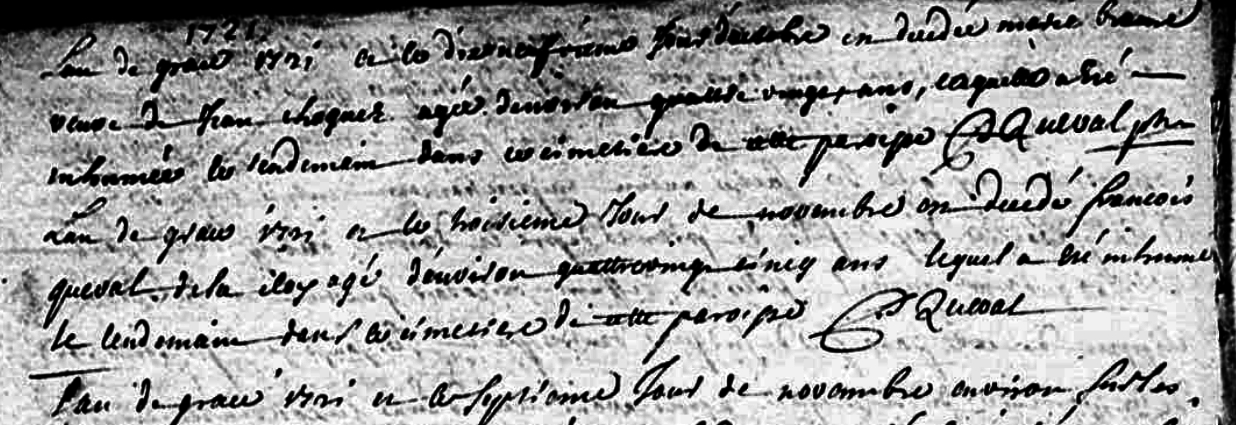 1721
Lan de grace 1721 et le dixneufvieme Jour doctobre en decedée marie
veuve de Jean choquet agée denviron quattre vingt ans, laquelle a été
inhumée le lendemain dans le cimetiere de cette paroisse Queval ptre
Lan de grace 1721 et le troisieme Jour de novembre en decedé francois
queval de la agé denviron quattrevingt cincq ans lequel a été inhumé
le lendemain dans le cimetiere de cette paroisse Queval
Lan de grace 1721 et le septieme Jour de novembre environ sur les